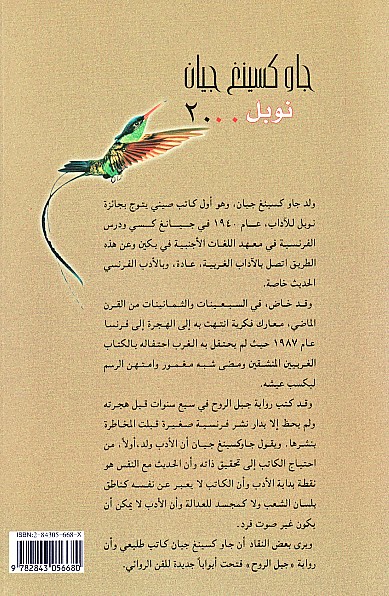 جاو كسينغ جيان
نوبل ٢٠٠٠
ولد جاو كسينغ جيان، وهو أول كاتب صيني يتوج بجائزة
نوبل للآداب، عام ١٩٤٠ في جيانغ كسي ودرس
الفرنسية في معهد اللغات الأجنبية في بكين وعن هذه
الطريق اتصل بالآداب الغربية، عادة، وبالأدب الفرنسي
الحديث خاصة.
وقد خاض، في السبعينات والثمانينات من القرن
الماضي، معارك فكرية انتهت به إلى الهجرة إلى فرنسا
عام ١٩٨٧ حيث لم يحتفل به الغرب احتفاله بالكتاب
الغربيين المنشقين ومضى شبه مغمور وامتهن الرسم
ليكسب عيشه.
وقد كتب رواية جبل الروح في سبع سنوات قبل هجرته
ولم يحظ إلا بدار نشر فرنسية صغيرة قبلت المخاطرة
بنشرها. ويقول جاوكسينغ جيان أن الأدب ولد، أولاً، من
احتياج الكاتب إلى تحقيق ذاته وأن الحديث مع النفس هو
نقطة بداية الأدب وأن الكاتب لا يعبر عن نفسه كناطق
بلسان الشعب ولا كمجسد للعدالة وأن الأدب لا يمكن أن
يكون غير صوت فرد.
ويرى بعض النقاد أن جاو كسينغ جيان كاتب طليعي وأن
رواية «جبل الروح» فتحت أبواباً جديدة للفن الروائي.
ISBN:2-84305-668-X
9 782843 056680